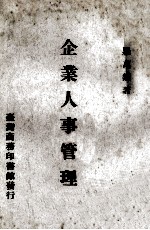 企業人事管理
臺灣商務印書館發行